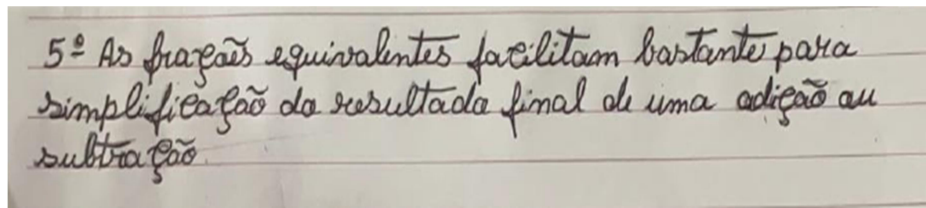 5º As frações equivalentes facilitam bastante para
simplificação do resultado final de uma adição ou
subtração